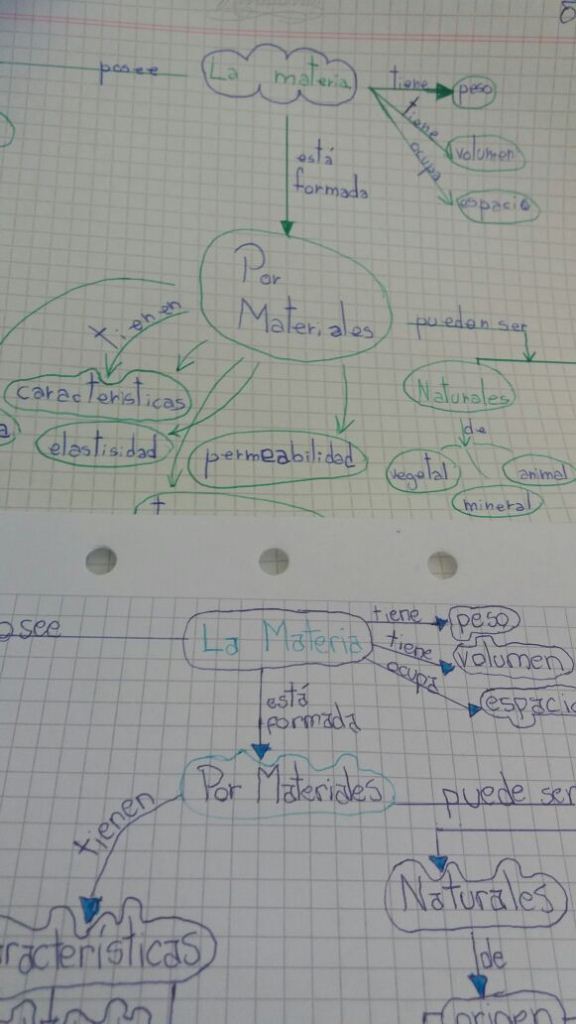 posee La materia tiene peso
tiene volumen
ocupa espacio
está
formada
Por
Materiales
tienen
pueden ser
características
Naturales
elastisidad
permeabilidad
de
vegetal
animal
mineral
osee La Materia tiene peso
tiene volumen
ocupa espacio
está
formada
Por Materiales
tienen
puede ser
racterísticas
Naturales
de